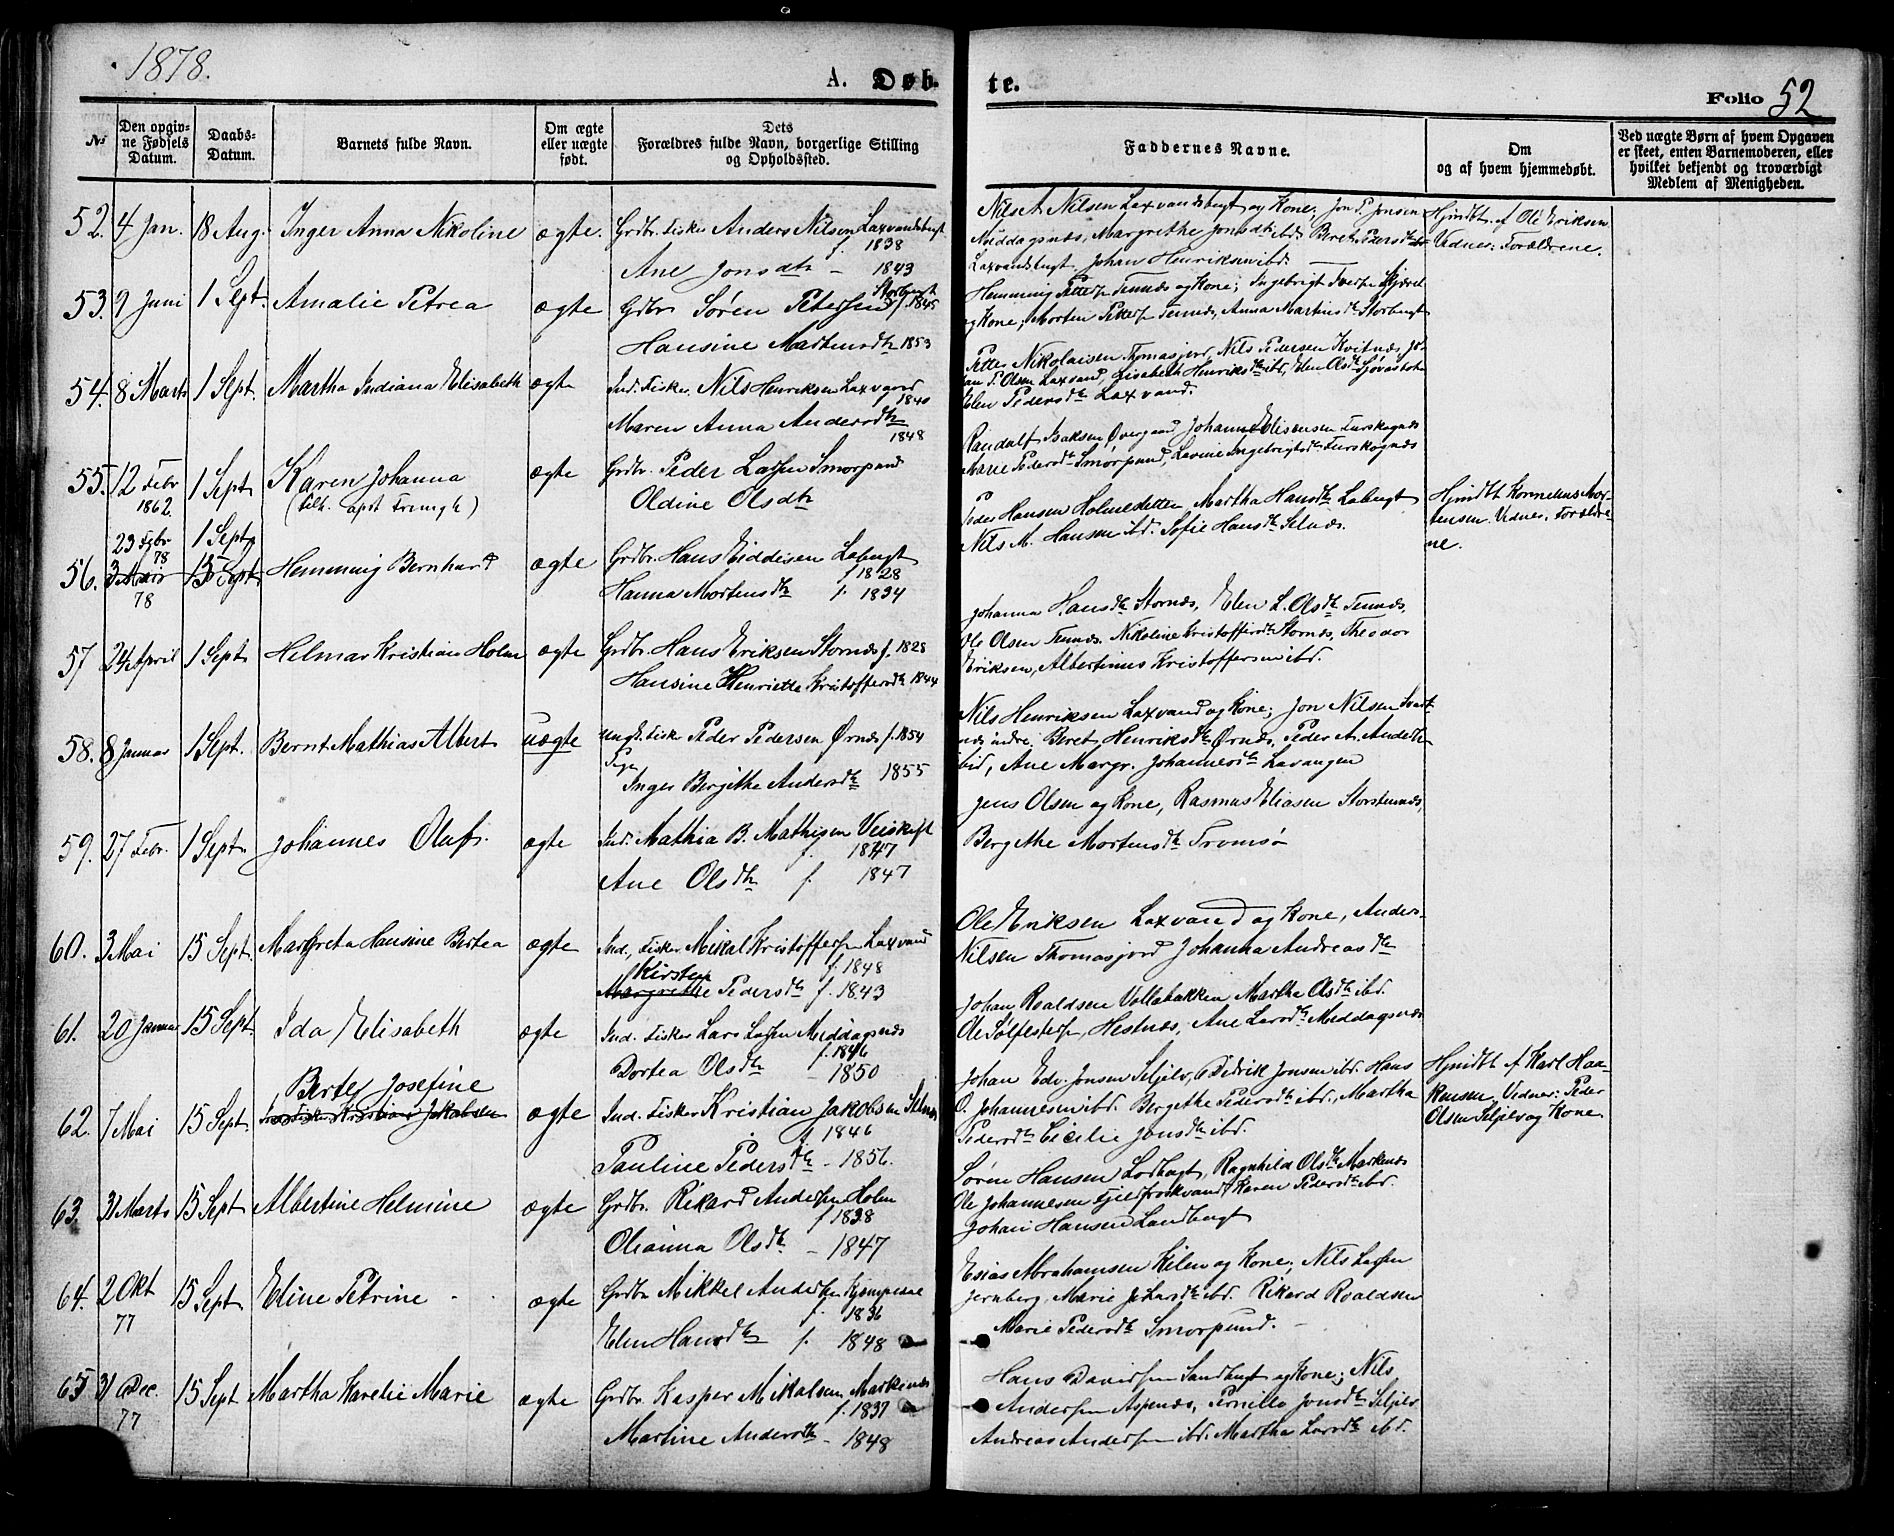 1878.
A. Døb-
te.
Folio 52
No
Den opgivne Fødsels Datum.
Daabs-Datum.
Barnets fulde Navn.
Om ægte eller uægte født.
Dets Forældres fulde Navn, borgerlige Stilling og Opholdssted.
Faddernes Navne.
Om og af hvem hjemmedøbt.
Ved uægte Børn af hvem Opgaven er skeet, enten Barnemoderen, eller hvilket bekjendt og troværdigt Medlem af Menigheden.
52. 4 Jan. 18 Aug. Inger Anna Nikoline ægte. Grdbr. Fisker Anders Nilsen Laxvandsbugt f. 1838
Ane Jonsdtr - 1843
Nils A. Nilsen Laxvandsbugt og Kone; Jon P. Jonsen
Middagsnæs, Margrethe Jonsdtr ibd. Beret Pedersdtr
Laxvandsbugt. Johan Henriksen ibd.
Hjmdbt. af Ole Eriksen
Vidner: Forældrene.
53. 9 Juni 1 Sept. Amalie Petrea ægte Grdbr Søren Petersen Storbugt f. 1845
Hansine Martinsdtr 1853
Hemming Pettersen Tennes og Kone; Ingebrigt Iversen
og Kone; Morten Petersen Tennes, Anna Martinsdtr Storbugt
54. 8 Marts 1 Sept. Martha Indiana Elisabeth ægte Ind. Fisker. Nils Henriksen Laxvand 1840
Maren Anna Andersdtr 1848
Petter Nikolaisen Thomasjord, Nils Pedersen Kvitnæs, Jo-
han P. Olsen Laxvand, Lisabeth Henriksdtr ibd, Elen Olsdtr
Elen Pedersdtr Laxvand.
55. 12 Febr 1862. 1 Sept. Karen Johanna ægte Grdbr. Peder Larsen Smørpund
Oldine Olsdtr
Randolf Isaksen Øvergaard Johan Eliseusen
Marie Pedersdtr Smørpund, Lavine Ingebrigtsdtr
56. 23 Febr 78 1 Sept
3 Mars 78 15 Sept. Hemming Bernhard ægte Grdbr. Hans Eiddisen Labugt f 1828
Hanna Mortensdtr f. 1834
Peder Hansen Holmesletten, Martha Hansdtr Labugt,
Nils M. Hansen ibd. Sofie Hansdtr Selnæs.
Hjmdbt Kornelius Mor-
tensen. Vidner. Forældre-
ne.
57 24 April 1 Sept Helmar Kristian Holm ægte Grdbr. Hans Eriksen Stornæs f. 1828
Hansine Henriette Kristoffersdtr 1844
Johanna Hansdtr Stornæs, Elen L. Olsdtr Tennæs,
Ole Olsen Tennæs. Nikoline Kristoffersdtr Stornæs, Theodor
Eriksen, Albertinus Kristoffersen ibd.
58. 8 Januar 1 Sept. Bernt Mathias Albert uægte Ungk. Fisker Peder Pedersen Ørnæs f. 1854
Pige Inger Bergithe Andersdtr 1855
Nils Henriksen Laxvand og Kone; Jon Nilsen Svart-
næs indre; Beret Henriksdtr Ørnæs, Peder A. Andersen
ibid, Ane Margr. Johannesdtr Lavangen
59. 27 Febr. 1 Sept. Johannes Olaf. ægte Ind. Mathis B. Mathisen f. 1847
Ane Olsdtr f. 1847
Jens Olsen og Kone, Rasmus Eliasen Storstennæs,
Bergithe Mortensdtr Tromsø
60. 3 Mai 15 Sept. Margreta Hansine Bertea ægte Ind., Fisker Mikal Kristoffersen Laxvand f. 1848
Kirsten Margrethe Pedersdtr f. 1843
Ole Eriksen Laxvand og Kone, Anders
Nilsen Thomasjord Johanna Andreasdtr
61. 20 Januar 15 Sept. Ida Elisabeth ægte Ind. Fisker Lars Larsen Middagsnæs f. 1846
Dortea Olsdtr - 1850
Johan Roaldsen Vollabakken Martha Olsdtr ibd.
Ole Sølfestersen, Hestnæs, Ane Larsdtr Middagsnæs
62. 7 Mai 15 Sept. Berte Josefine
Kristian Jakobsen ægte Ind. Fisker Kristian Jakobsen Selnæs f. 1846
Pauline Pedersdtr - 1856.
Johan Edv. Jonsen Seljelv, Didrik Jonsen ibd. Hans
O. Johannesen ibd. Bergithe Pedersdtr ibd., Martha
Pedersdtr Cicilie Jonsdtr ibd.
Hjmdbt af Karl Haa-
kensen. Vidner: Peder
Olsen Seljelv og Kone.
63. 31 Marts 15 Sept Albertine Helmine ægte Grdbr. Rikard Andersen Holm f. 1838
Olianna Olsdtr - 1847
Søren Hansen Lodbugt, Ragnhild Olsdtr Markenæs
Ole Johannesen Fjeldfroskvand, Karen Pedersdtr ibd.
Johan Hansen Sandbugt
64. 2 Okt 77 15 Sept Eline Petrine ægte Grdbr Mikkel Andersen f. 1836
Elen Hansdtr f. 1848
Esias Abrahamsen Kilen og Kone; Nils Larsen
Jernberg, Marie Johnsdtr ibd. Rikard Roaldsen
Marie Pedersdtr Smørpund.
65 31 Dec. 77 15 Sept Martha Karelie Marie ægte Grdbr. Kasper Mikalsen Markenæs f. 1837
Martine Andersdtr - 1848
Hans Davidsen Sandbugt og Kone; Nils
Andersen Aspenæs, Pernille Jonsdtr Seljelv.
Andreas Andersen ibd. Martha Larsdtr ibd.